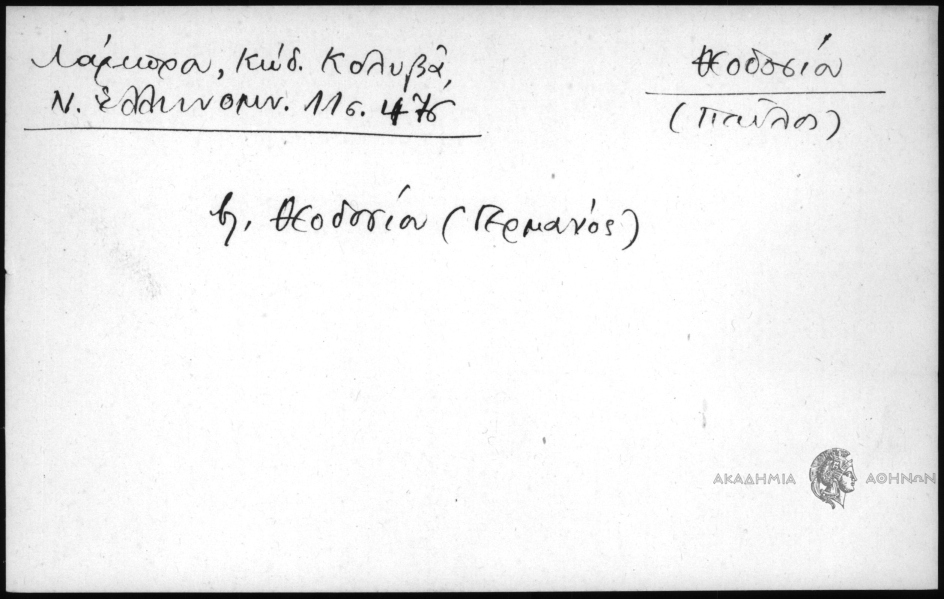 Λάμπρου, Κώδ. Κολυβᾶ,
Ν. Ἑλληνομν. 11 σ. 475
Θεοδοσίου
(Παῦλος)
βλ. Θεοδοσίου (Γερμανός)
ΑΚΑΔΗΜΙΑ ΑΘΗΝΩΝ